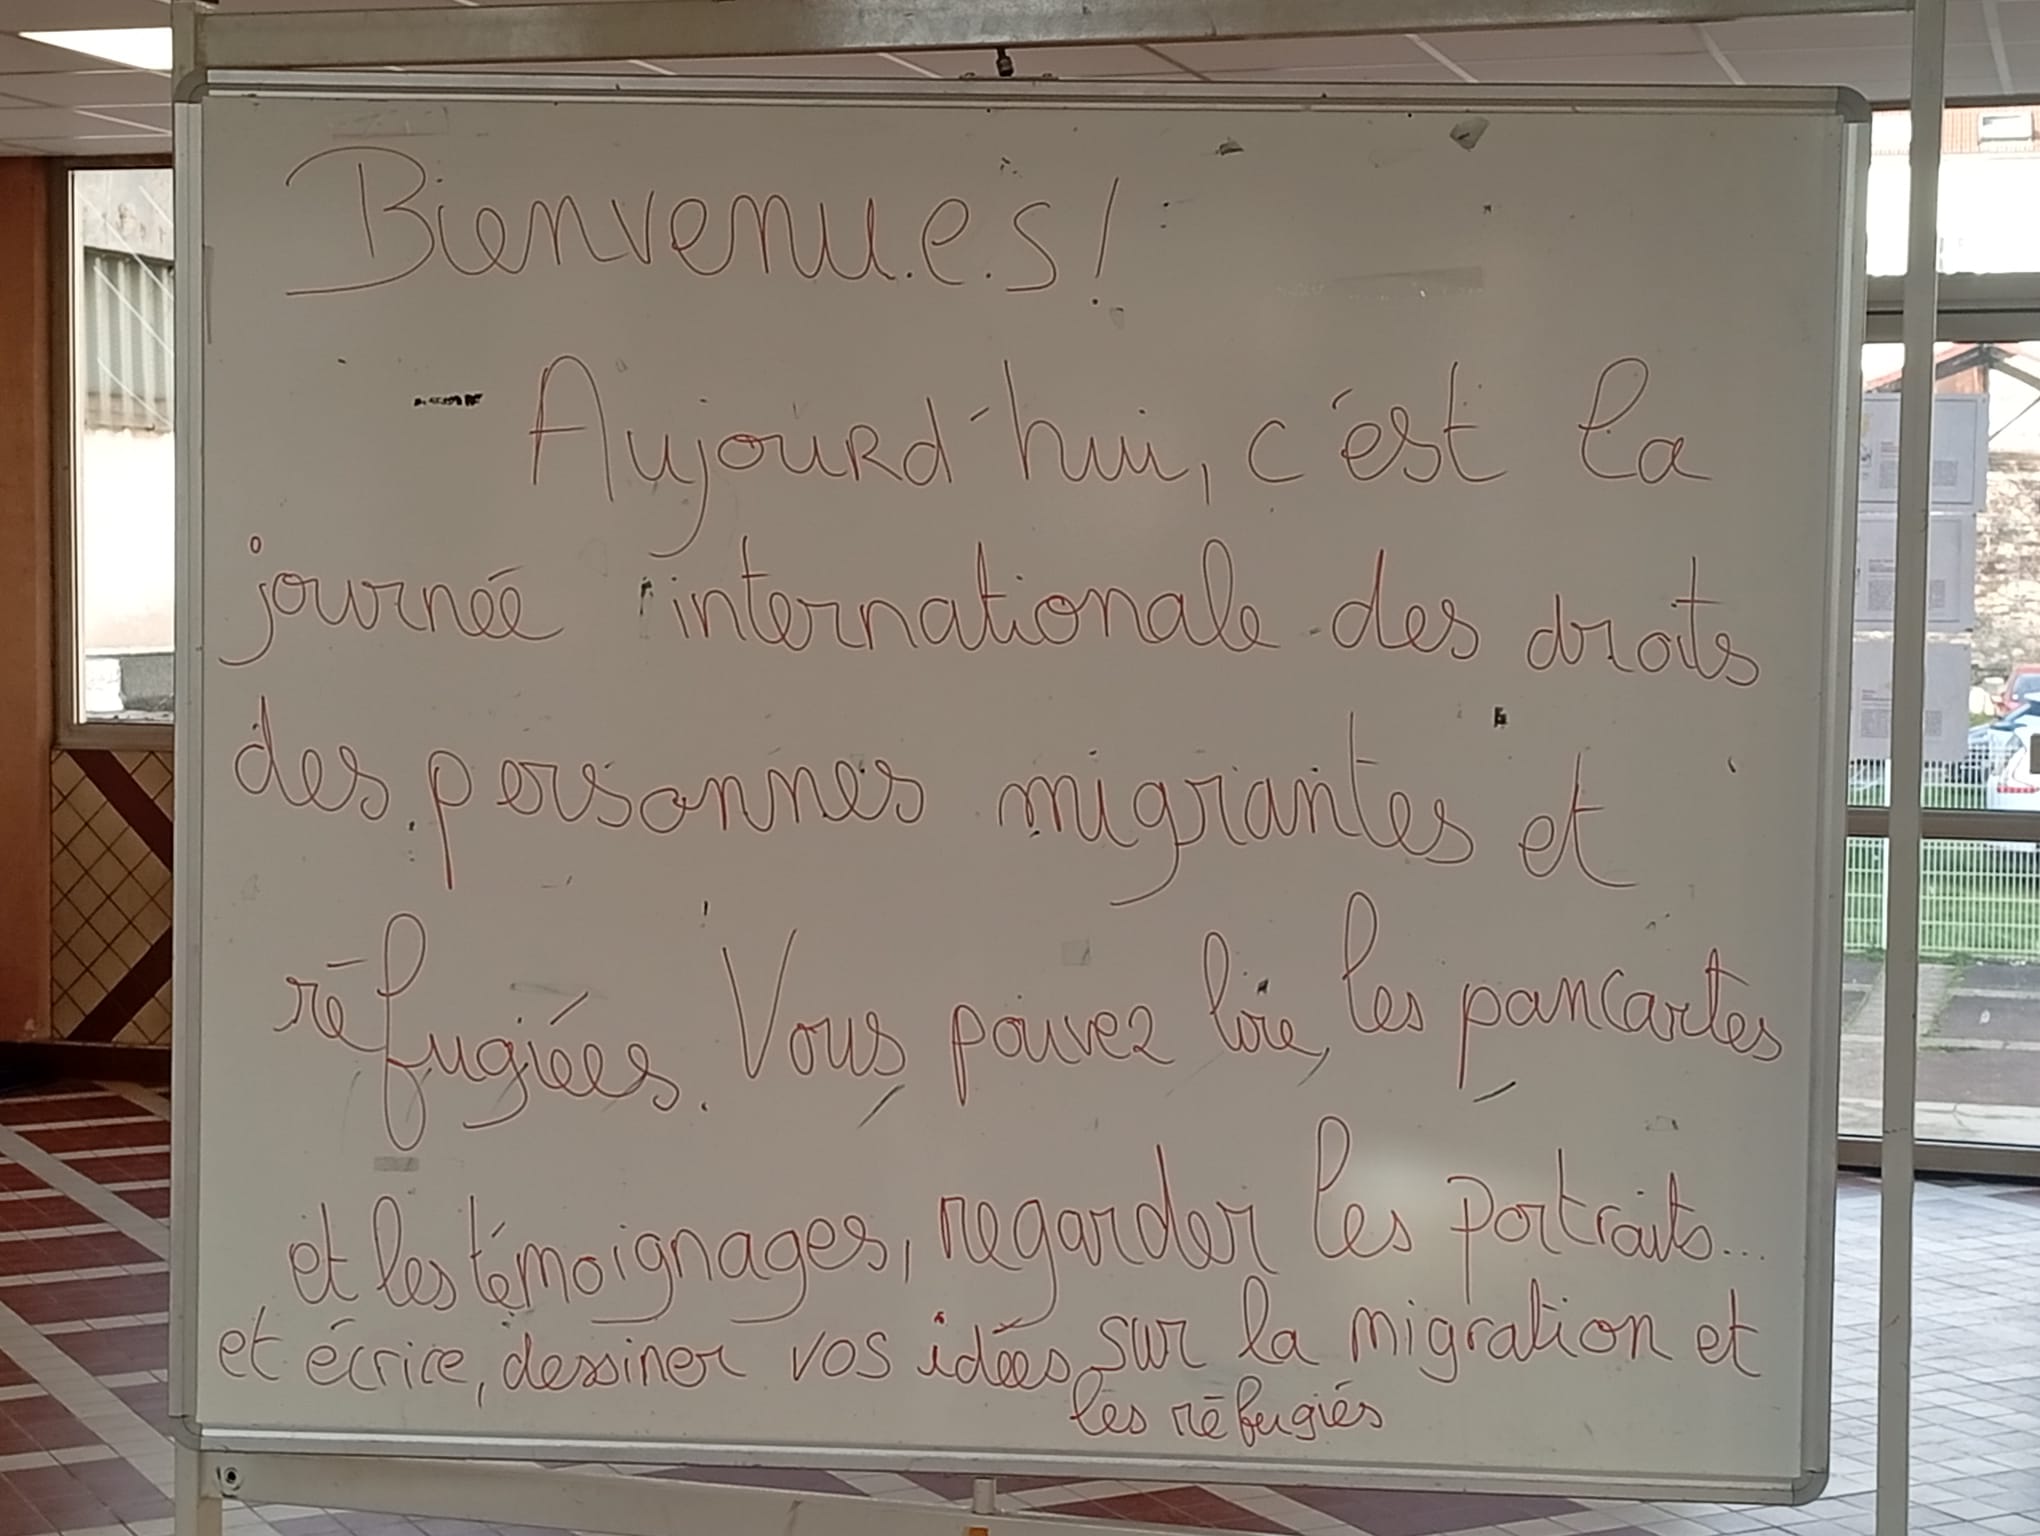 Bienvenu.e.s !
Aujourd'hui, c'est la
journée internationale des droits
des personnes migrantes et
réfugiées. Vous pouvez lire, les pancartes
et les témoignages, regarder les portraits...
et écrire, dessiner vos idées sur la migration et
les réfugiés